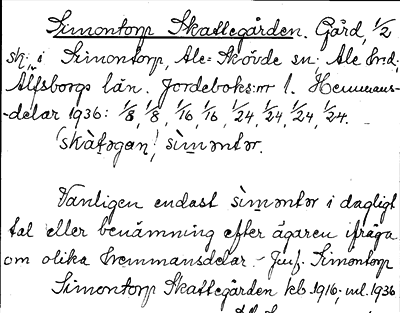 Simontorp Skattegården. Gård, 1/2
sk: i Simontorp, Ale-Skövde sn. Ale hrd.
Älfsborgs län. Jordeboksnr 1. Hemmans-
-delar 1936: 1/8, 1/8, 1/16, 1/16, 1/24, 1/24, 1/24, 1/24.
(skàtəgan) sìməntər.
Vanligen endast sìməntər i dagligt
tal eller benämning efter ägaren ifråga
om olika hemmansdelar. - Jmf. Simontorp
Simontorp Skattegården kb. 1916, ml. 1936